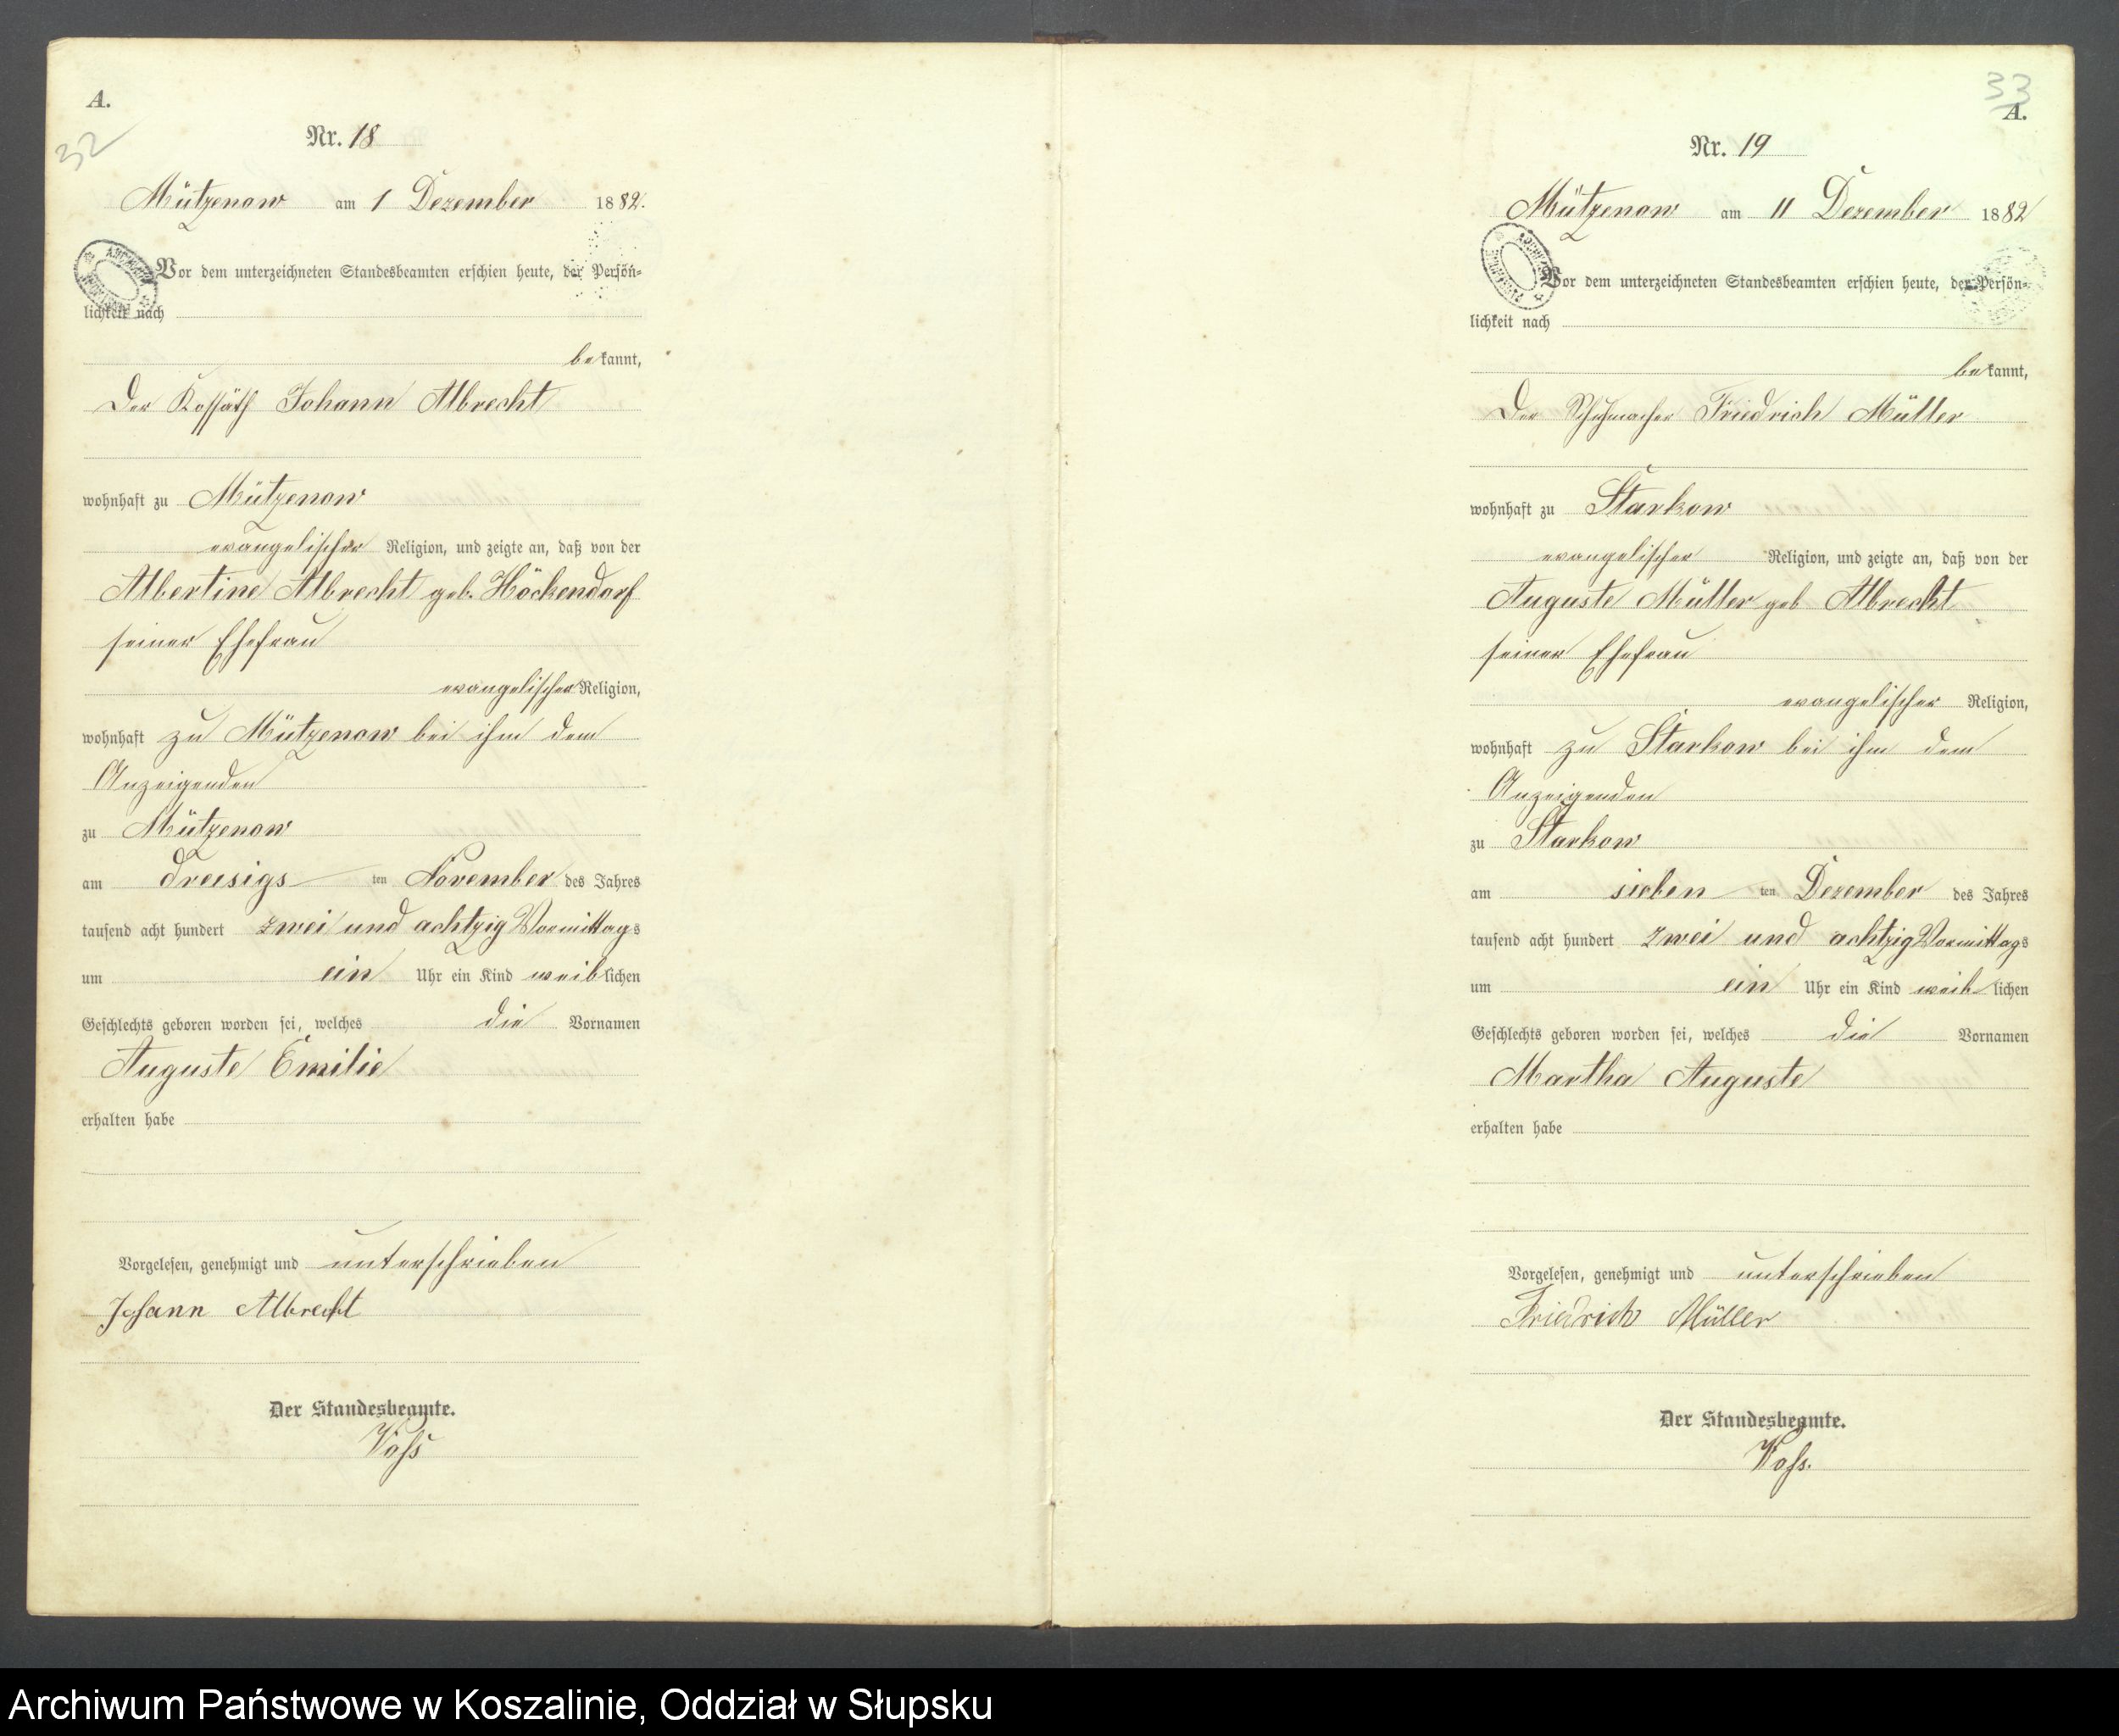 A.
32
Nr. 18
Mützenow am 1 Dezember 1882.
Vor dem unterzeichneten Standesbeamten erschien heute, der Persön-
lichkeit nach
bekannt,
Der Kossäth Johann Albrecht
wohnhaft zu Mützenow
evangelischer Religion, und zeigte an, daß von der
Albertine Albrecht geb. Höckendorf
seiner Ehefrau
evangelischer Religion,
wohnhaft zu Mützenow bei ihm dem
Anzeigenden
zu Mützenow
am dreisigs ten November des Jahres
tausend acht hundert zwei und achtzig Vormittags
um ein Uhr ein Kind weiblichen
Geschlechts geboren worden sei, welches die Vornamen
Auguste Emilie
erhalten habe
Vorgelesen, genehmigt und unterschrieben
Johann Albrecht
Der Standesbeamte.
Voß
33
A.
Nr. 19
Mützenow am 11 Dezember 1882
Vor dem unterzeichneten Standesbeamten erschien heute, der Persön-
lichkeit nach
bekannt,
Der Schuhmacher Friedrich Müller
wohnhaft zu Starkow
evangelischer Religion, und zeigte an, daß von der
Auguste Müller geb Albrecht
seiner Ehefrau
evangelischer Religion,
wohnhaft zu Starkow bei ihm dem
Anzeigenden
zu Starkow
am sieben ten Dezember des Jahres
tausend acht hundert zwei und achtzig Vormittags
um ein Uhr ein Kind weiblichen
Geschlechts geboren worden sei, welches die Vornamen
Martha Auguste
erhalten habe
Vorgelesen, genehmigt und unterschrieben
Friedrich Müller
Der Standesbeamte.
Voß.
Archiwum Państwowe w Koszalinie, Oddział w Słupsku